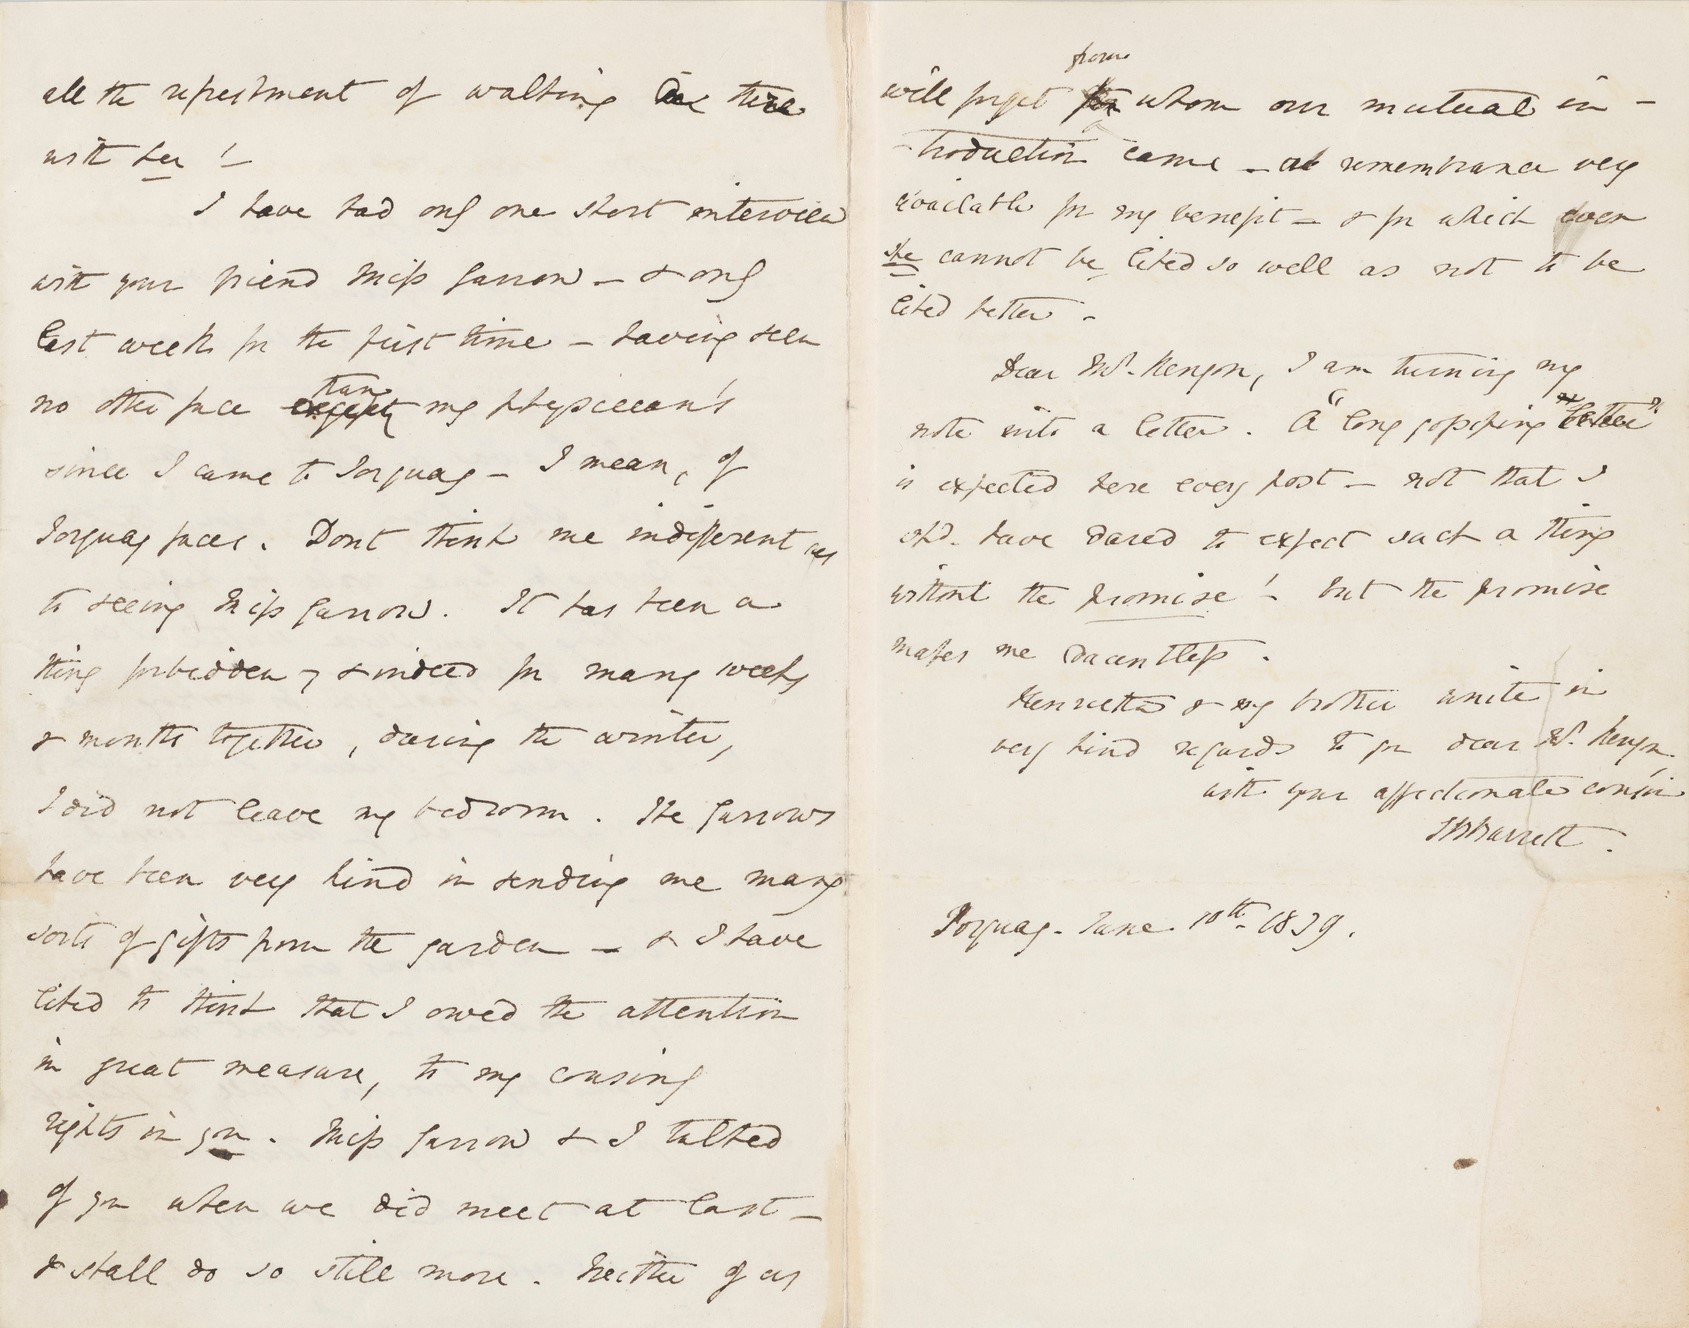 all the refreshment of walking there
with her!—
I have had only one short interview
with your friend Miss Garrow — & only
last week for the first time — having seen
no other face except than my physician's
since I came to Torquay — I mean, of
Torquay faces. Dont think me indifferent as
to seeing Miss Garrow. It has been a
thing forbidden, & indeed for many weeks
& months together, during the winter,
I did not leave my bedroom. The Garrows
have been very kind in sending me many
sorts of gifts from the garden — & I have
liked to think that I owed the attention
in great measure, to my cousinly
rights in you. Miss Garrow & I talked
of you when we did meet at last —
& shall do so still more. Neither of us
will forget from whom our mutual in-
troduction came — a remembrance very
available for my benefit — & for which even
she cannot be liked so well as not to be
liked better —
Dear Mr. Kenyon, I am turning my
note into a letter. A "long gossiping letter"
is expected here every post — not that I
shd. have dared to expect such a thing
without the promise! — but the promise
makes me dauntless.
Henrietta & my brother unite in
very kind regards to you dear Mr. Kenyon,
with your affectionate cousin
EBBarrett.
Torquay. June 10th. 1839.